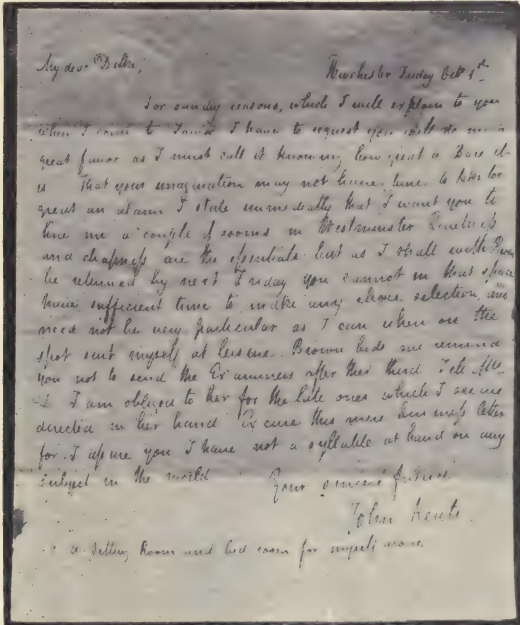 My dear Dilke,
Winchester Friday Octr 1st
For sundry reasons, which I will explain to you
when I come to Town, I have to request you will do me a
great favor as I must call it knowing how great a Bore it
is. That your imagination may not have time to take too
great an alarm I state immediately that I want you to
hire me a couple of rooms in Westminster. Quietness
and cheapness are the essentials: but as I shall with Brown
be returned by next Friday you cannot in that space
have sufficient time to make any choice selection, and
need not be very particular as I can when on the
spot suit myself at leisure. Brown bids me remind
you not to send the Examiners after the third. Tell Mrs
D. I am obliged to her for the late ones which I see are
directed in her hand. Excuse this mere business letter
for I assure you I have not a syllable at hand on any
subject in the world.
Your sincere friend
John Keats
a sitting Room and bed room for myself alone.